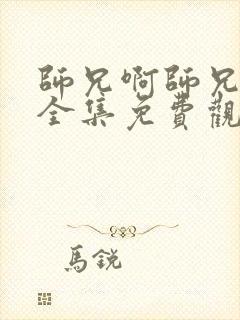 師兄啊師兄
全集免費觀
馬銳